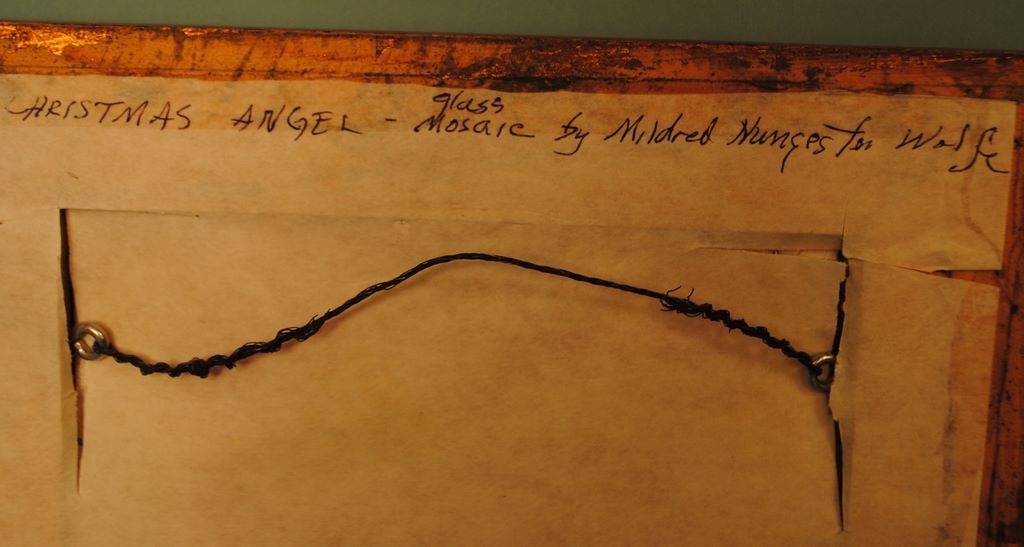 CHRISTMAS ANGEL - glass Mosaic by Mildred Nungester Wolfe